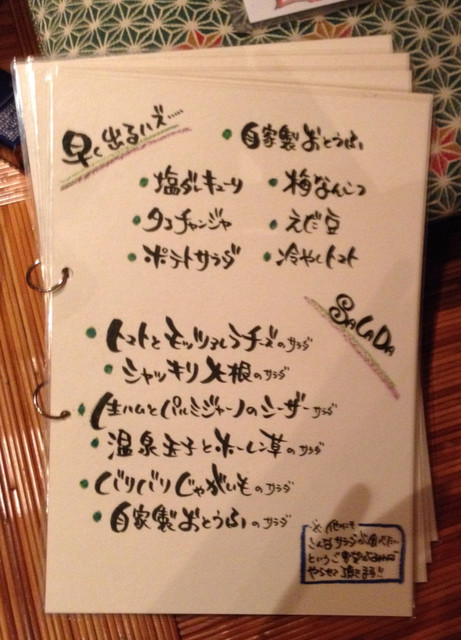 早く出るハズ……
自家製おとうふ
塩ダレキューリ
梅なんこつ
タコチャンジャ
えだ豆
ポテトサラダ
冷やしトマト
SaLaDa
トマトとモッツァレラチーズのサラダ
シャッキリ大根のサラダ
生ハムとパルミジャーノのシーザーサラダ
温泉玉子とホーレン草のサラダ
バリバリじゃがいものサラダ
自家製おとうふのサラダ
※他にも
こんなサラダが食べたい
というご要望があれば
やらせて頂きます!!